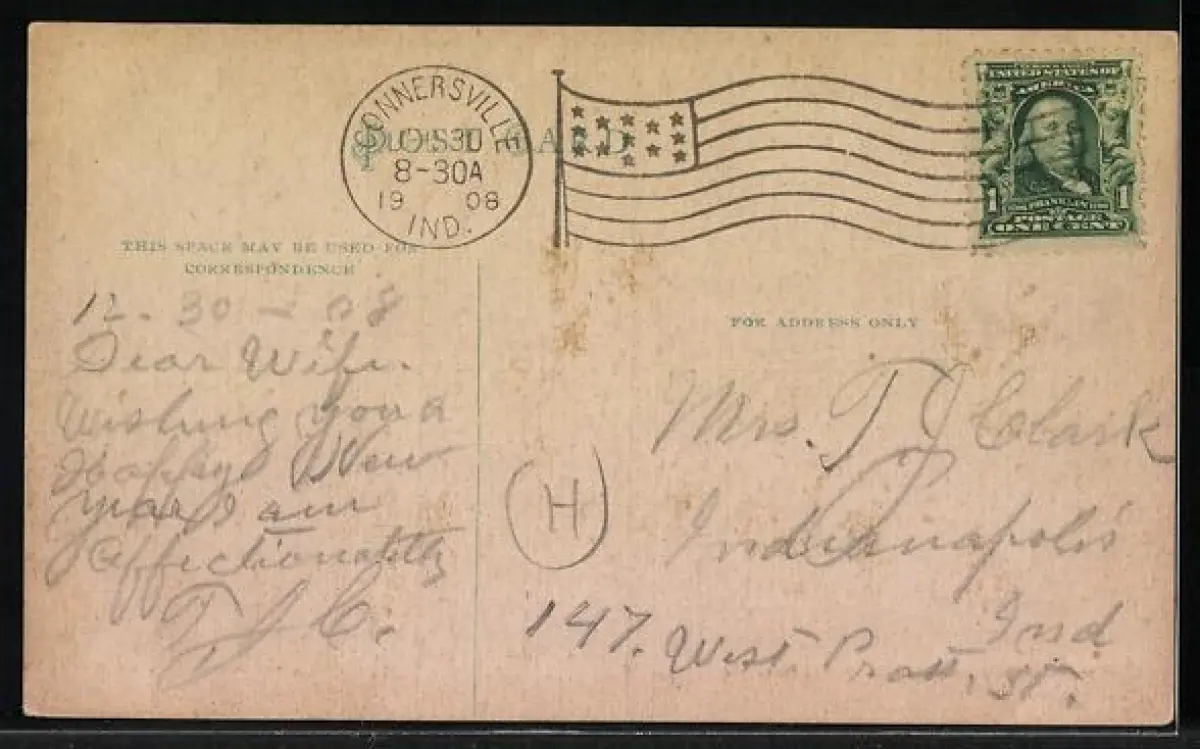 CONNERSVILLE
DEC 30
8-30A
1908
IND.
POST CARD
UNITED STATES OF
AMERICA
1 1
FRANKLIN
POSTAGE
ONE CENT
THIS SPACE MAY BE USED FOR
CORRESPONDENCE
FOR ADDRESS ONLY
12-30-08
Dear Wife.
Wishing you a
Happy New
year I am
Affectionately
T J C.
(H)
Mrs. T J Clark
Indianapolis
Ind.
147. West. Pratt. St.